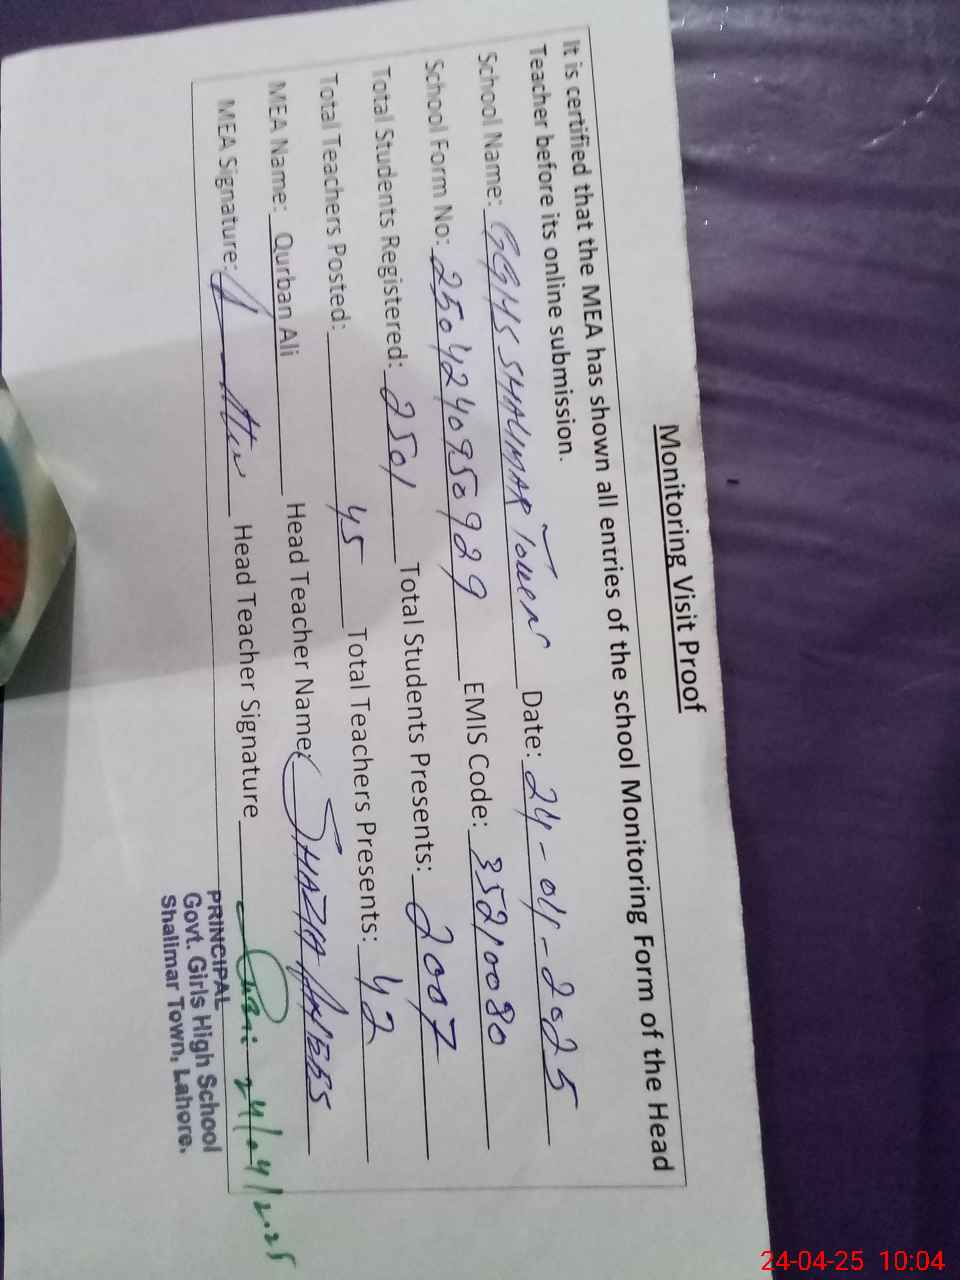 Monitoring Visit Proof
It is certified that the MEA has shown all entries of the school Monitoring Form of the Head
Teacher before its online submission.
School Name: GGHS SHALIMAR Town Date: 24-04-2025
School Form No: 2504240950929 EMIS Code: 35210080
Total Students Registered: 2501 Total Students Presents: 2007
Total Teachers Posted: 45 Total Teachers Presents: 42
MEA Name: Qurban Ali Head Teacher Name: SHAZIA ANEES
MEA Signature: Head Teacher Signature 24/04/2025
PRINCIPAL
Govt. Girls High School
Shalimar Town, Lahore.
24-04-25 10:04